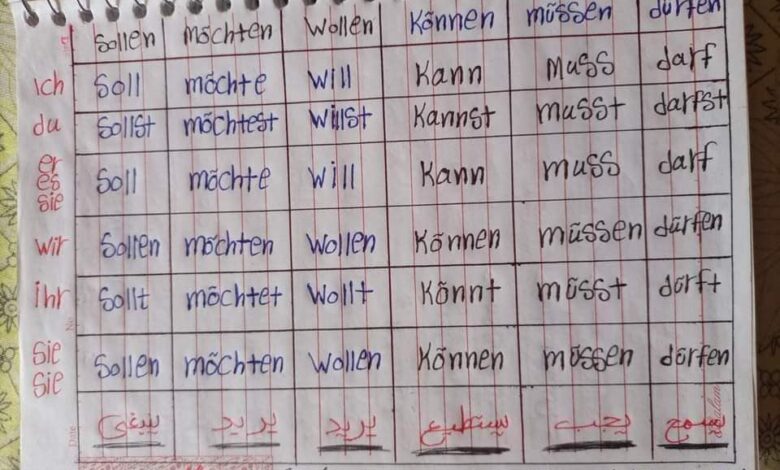 sollen möchten wollen können müssen dürfen
ich soll möchte will kann muss darf
du sollst möchtest willst kannst musst darfst
er
es soll möchte will kann muss darf
sie
wir sollen möchten wollen können müssen dürfen
ihr sollt möchtet wollt könnt müsst dürft
sie sollen möchten wollen können müssen dürfen
Sie
ينبغي يريد يريد يستطيع يجب يسمح